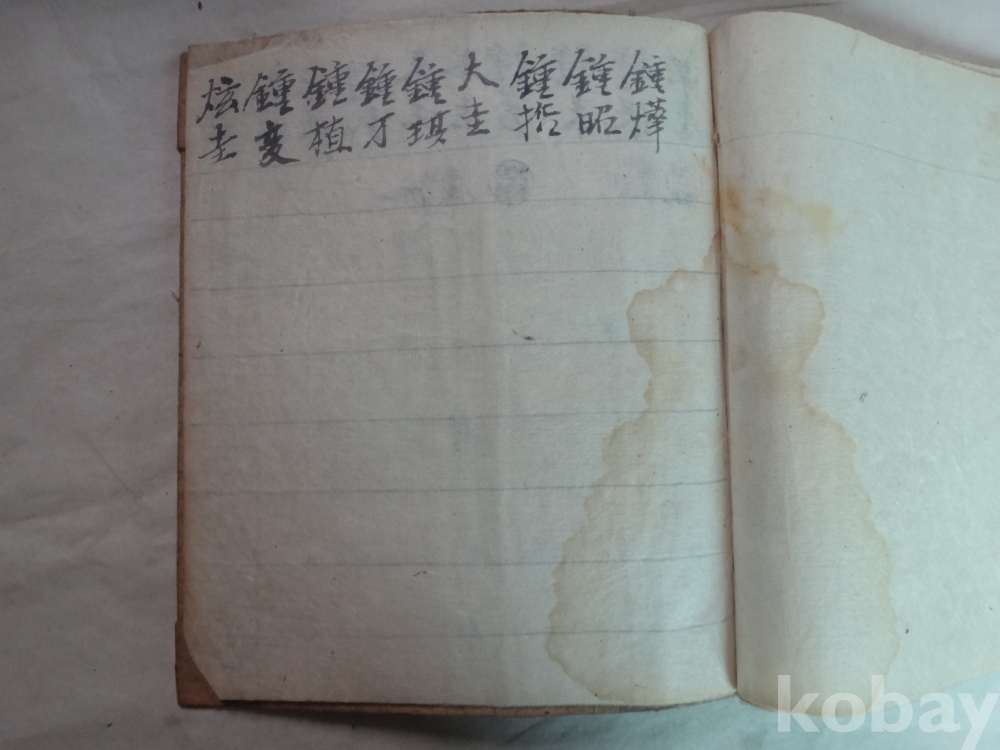 鍾燁
鍾昭
鍾㨗
大圭
鍾琪
鍾才
鍾植
鍾夏
炫圭
kobay